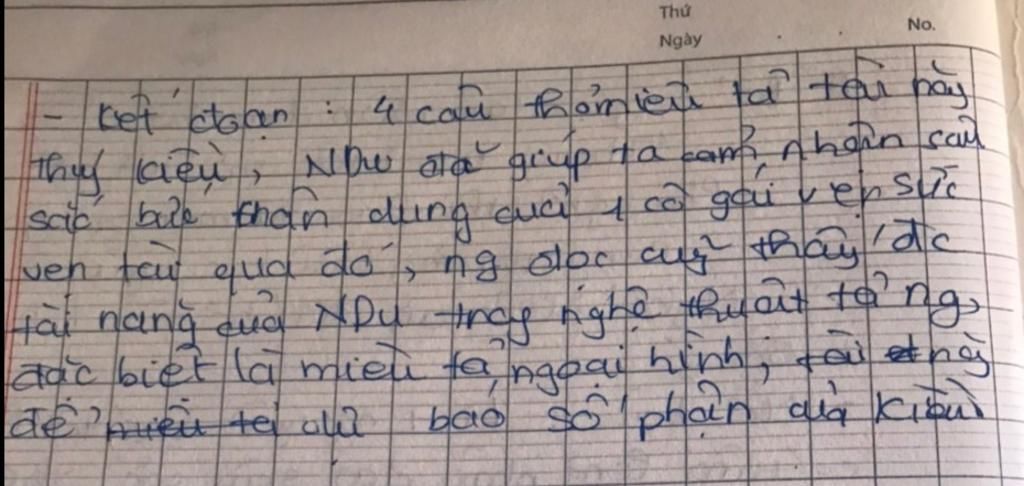 Thứ
Ngày
No.
- Kết đoạn : 4 câu thơ miêu tả tài này
Thuý Kiều, NDu đã giúp ta cảm nhận sâu
sắc bức chân dung của 1 cô gái vẹn sắc
vẹn tài qua đó, ng đọc cũng thấy đc
tài năng của NDu trong nghệ thuật tả ng,
đặc biệt là miêu tả ngoại hình, tài
để dự báo số phận của Kiều